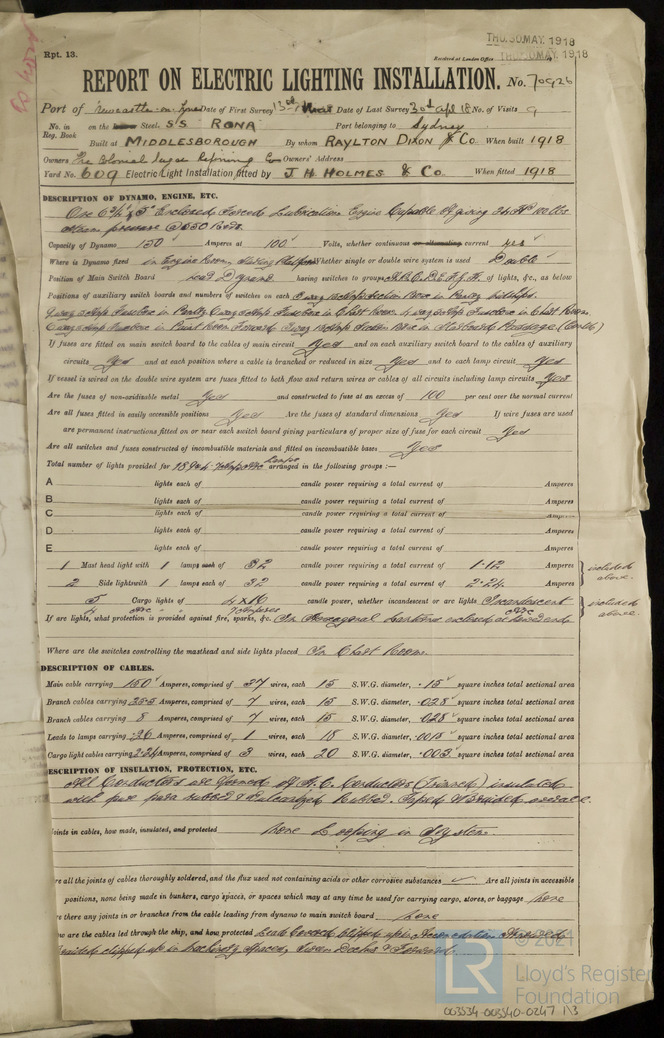 THU. 30 MAY 1918
THU. 30 MAY 1918
Rpt. 13.
Received at London Office
REPORT ON ELECTRIC LIGHTING INSTALLATION. No. 70926
Port of Newcastle-on-Tyne Date of First Survey 13th Date of Last Survey 30th Apl 18 No. of Visits 9
No. in Reg. Book on the Steel S S RONA Port belonging to Sydney
Built at MIDDLESBOROUGH By whom RAYLTON DIXON & Co. When built 1918
Owners The Colonial Sugar Refining Co Owners' Address
Yard No. 609 Electric Light Installation fitted by J. H. HOLMES & Co. When fitted 1918
DESCRIPTION OF DYNAMO, ENGINE, ETC.
One 6¾ & 5" Enclosed Forced Lubrication Engine Capable of giving 24 HP 100 lbs
steam pressure @ 550 Revs.
Capacity of Dynamo 150 Amperes at 100 Volts, whether continuous or alternating current yes
Where is Dynamo fixed in Engine Room Whether single or double wire system is used Double
Position of Main Switch Board near Dynamo having switches to groups A.B.C.D.E.F.G.H. of lights, &c., as below
Positions of auxiliary switch boards and numbers of switches on each
If fuses are fitted on main switch board to the cables of main circuit Yes and on each auxiliary switch board to the cables of auxiliary
circuits Yes and at each position where a cable is branched or reduced in size Yes and to each lamp circuit Yes
If vessel is wired on the double wire system are fuses fitted to both flow and return wires or cables of all circuits including lamp circuits Yes
Are the fuses of non-oxidizable metal Yes and constructed to fuse at an excess of 100 per cent over the normal current
Are all fuses fitted in easily accessible positions Yes Are the fuses of standard dimensions Yes If wire fuses are used
are permanent instructions fitted on or near each switch board giving particulars of proper size of fuse for each circuit Yes
Are all switches and fuses constructed of incombustible materials and fitted on incombustible bases Yes
Total number of lights provided for arranged in the following groups :—
A lights each of candle power requiring a total current of Amperes
B lights each of candle power requiring a total current of Amperes
C lights each of candle power requiring a total current of Amperes
D lights each of candle power requiring a total current of Amperes
E lights each of candle power requiring a total current of Amperes
1 Mast head light with 1 lamps each of 32 candle power requiring a total current of 1.12 Amperes included
2 Side lights with 1 lamps each of 32 candle power requiring a total current of 2.24 Amperes above.
5 Cargo lights of 4 x 16 candle power, whether incandescent or arc lights Incandescent included
4 Arc 7 Amperes arc above.
If arc lights, what protection is provided against fire, sparks, &c. In Hexagonal Lanterns enclosed at
Where are the switches controlling the masthead and side lights placed In Chart Room.
DESCRIPTION OF CABLES.
Main cable carrying 150 Amperes, comprised of 37 wires, each 15 S.W.G. diameter, .15 square inches total sectional area
Branch cables carrying 35.5 Amperes, comprised of 7 wires, each 15 S.W.G. diameter, .028 square inches total sectional area
Branch cables carrying 8 Amperes, comprised of 7 wires, each 15 S.W.G. diameter, .028 square inches total sectional area
Leads to lamps carrying .36 Amperes, comprised of 1 wires, each 18 S.W.G. diameter, .0018 square inches total sectional area
Cargo light cables carrying 2.24 Amperes, comprised of 3 wires, each 20 S.W.G. diameter, .003 square inches total sectional area
ESCRIPTION OF INSULATION, PROTECTION, ETC.
All Conductors are formed of H. C. Conductors (Tinned) insulated
with pure para rubber & Vulcanized Rubber. Taped & Braided overall.
oints in cables, how made, insulated, and protected none Looping in System.
re all the joints of cables thoroughly soldered, and the flux used not containing acids or other corrosive substances ✓ Are all joints in accessible
positions, none being made in bunkers, cargo spaces, or spaces which may at any time be used for carrying cargo, stores, or baggage None
re there any joints in or branches from the cable leading from dynamo to main switch board None
ow are the cables led through the ship, and how protected Lead Covered Clipped up in Accomodation Armoured
Braided clipped up in Machinery Spaces, Tween Decks & Forward.
LR
© 2021
Lloyd's Register
Foundation
003534-003540-0247 1/3